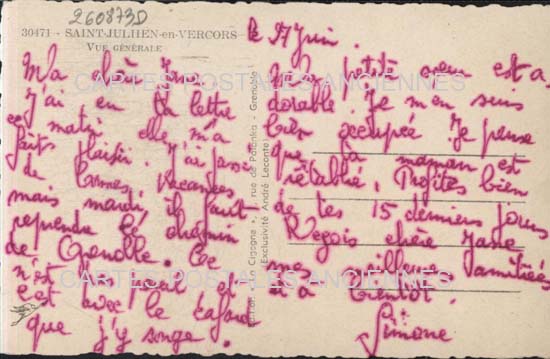 2608730
30471 - SAINT-JULHIEN-en-VERCORS
VUE GÉNÉRALE
le 27 Juin.
Ma chère Jane
J'ai eu ta lettre
ce matin elle m'a
fait plaisir. J'ai passé
de bonnes vacances
mais mardi il faut
reprendre le chemin
de Grenoble. Ce
n'est pas pareil et
c'est avec le cafard
que j'y songe.
La petite soeur est a-
dorable. Je m'en suis
bien occupée. Je pense
que ta maman est
rétablie. Profites bien
de tes 15 derniers jours
Reçois chère Jane
mes meilleures amitiés
à bientôt.
Simone
La Cigogne, rue de Palanka - Grenoble
Exclusivité André Leconte
CARTES POSTALES ANCIENNES
CARTES POSTALES ANCIENNES